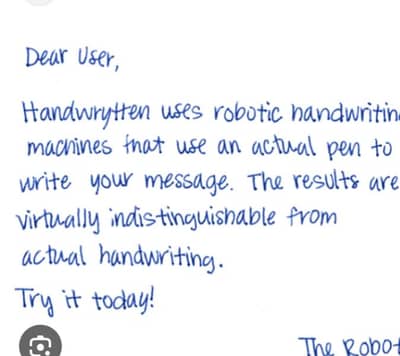 Dear User,
Handwrytten uses robotic handwritin
machines that use an actual pen to
write your message. The results are
virtually indistinguishable from
actual handwriting.
Try it today!
The Robot